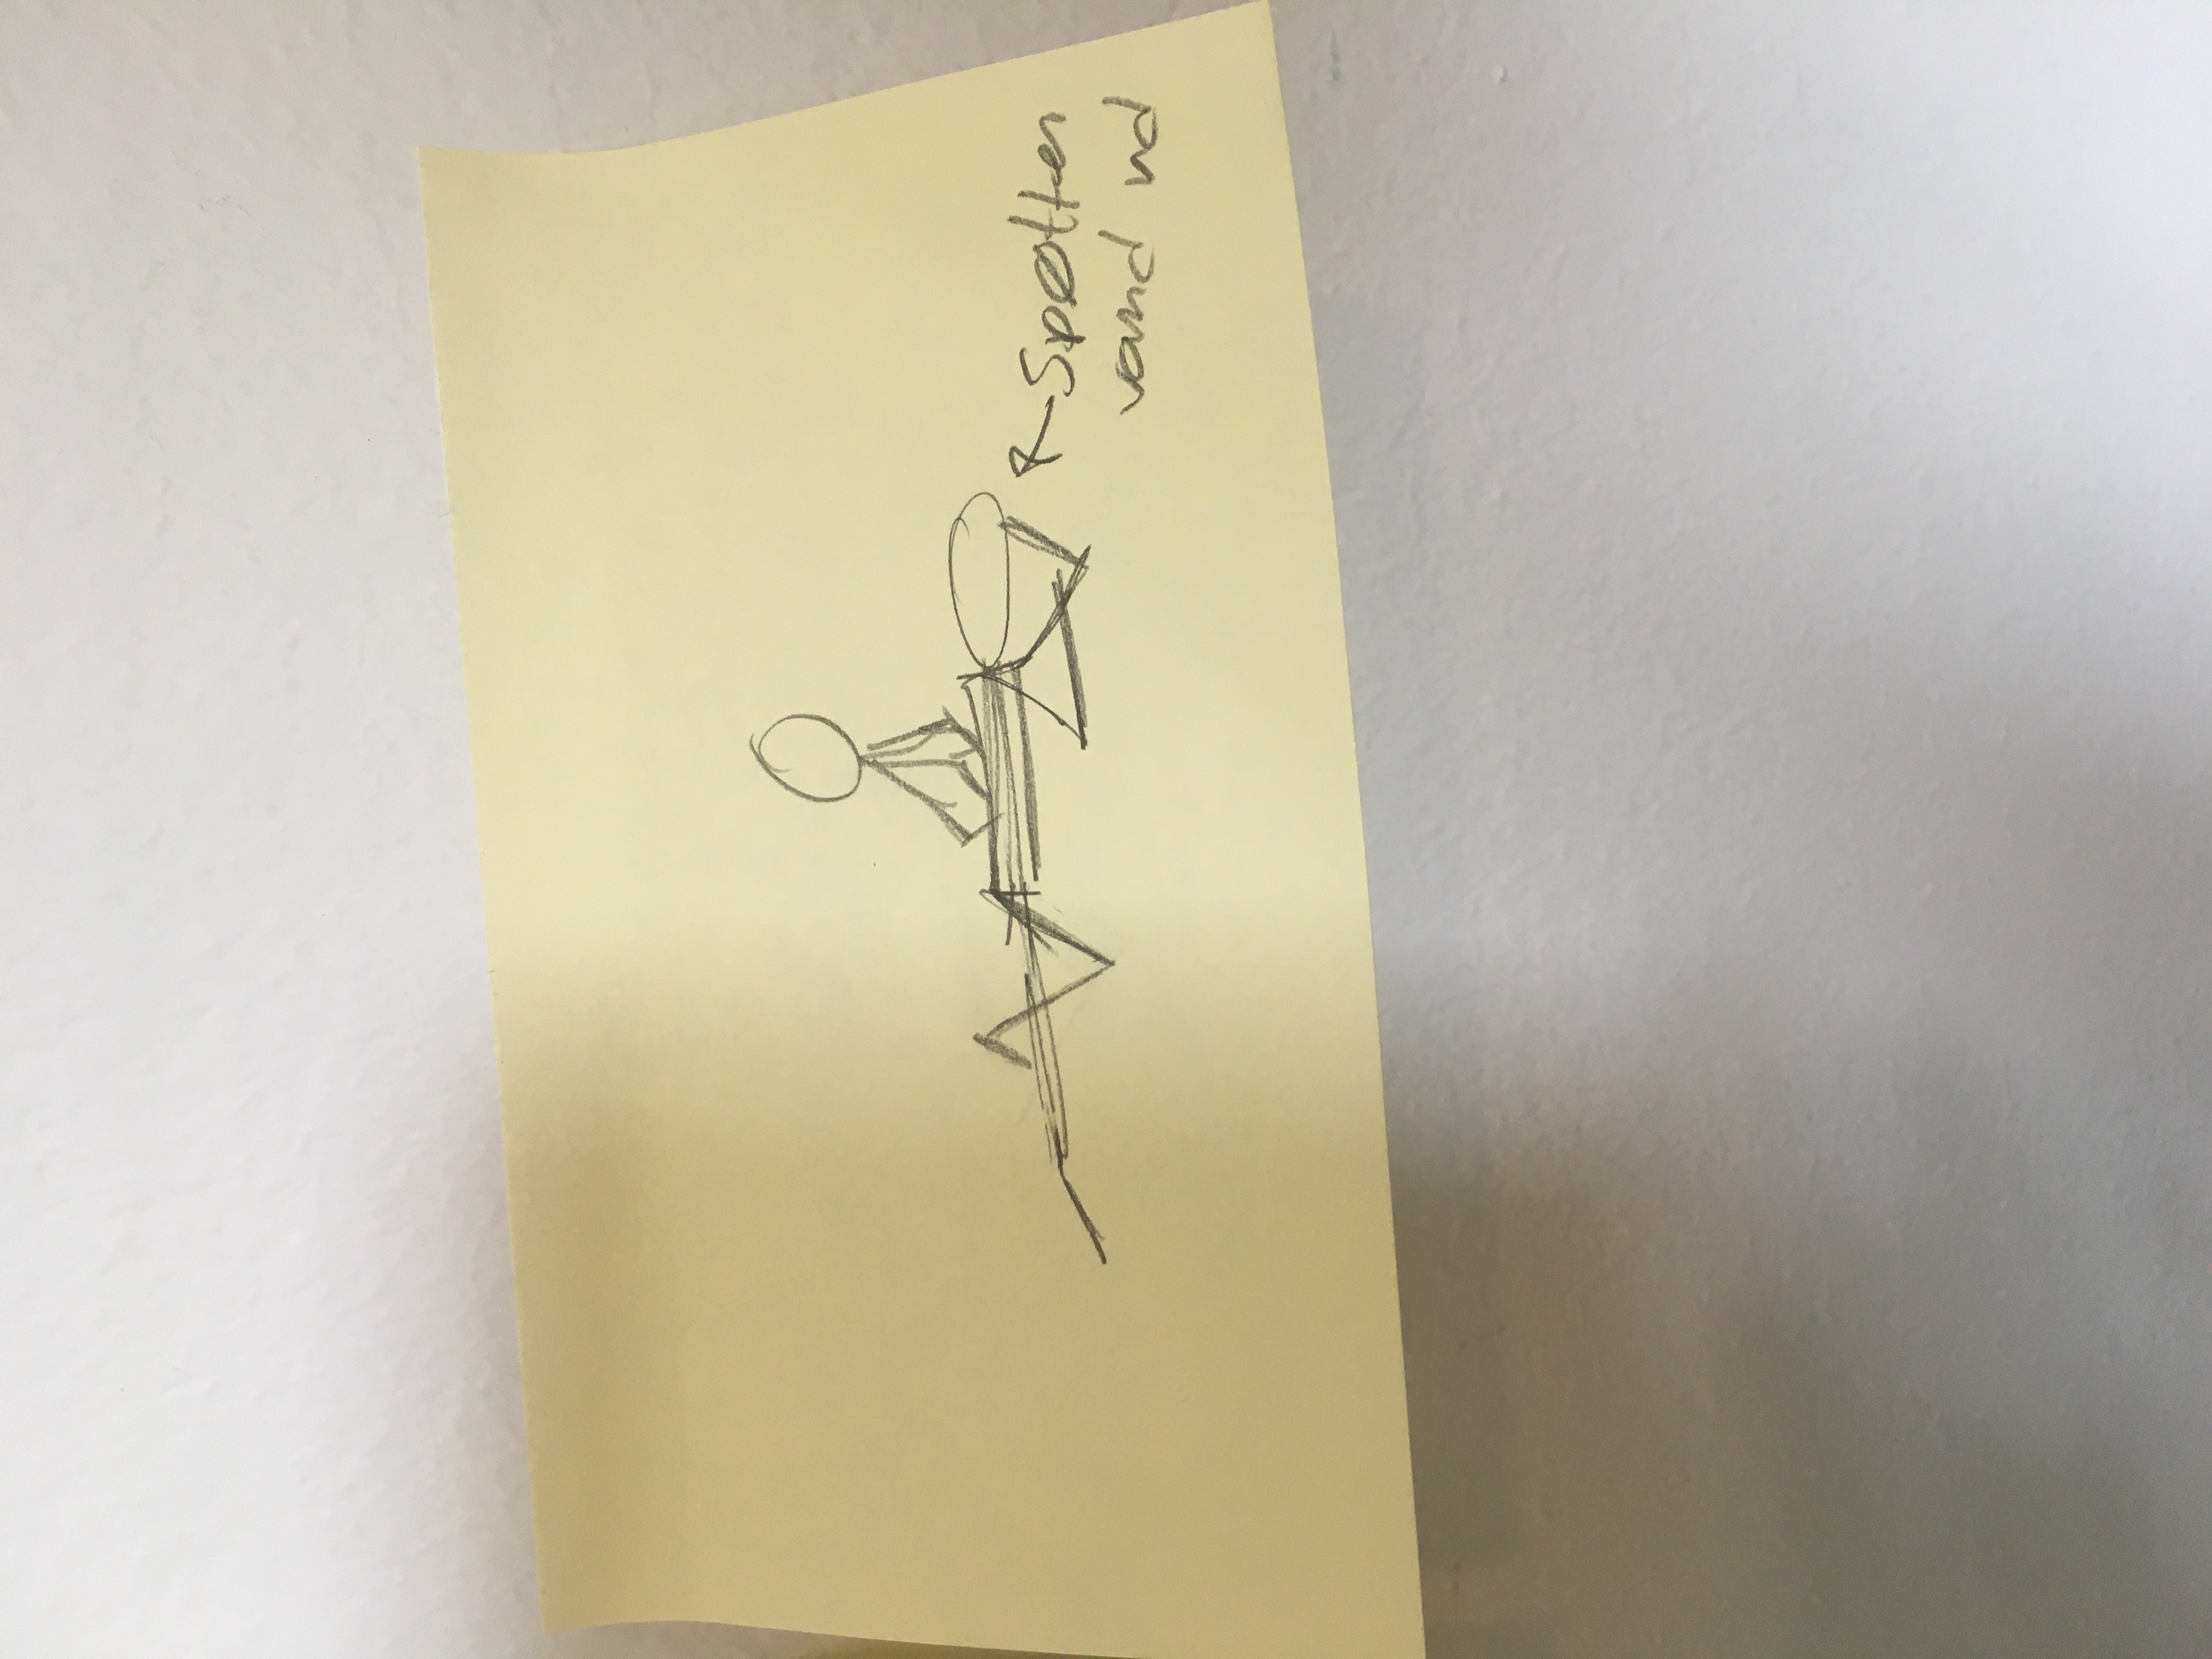 Spøtter
vand ud